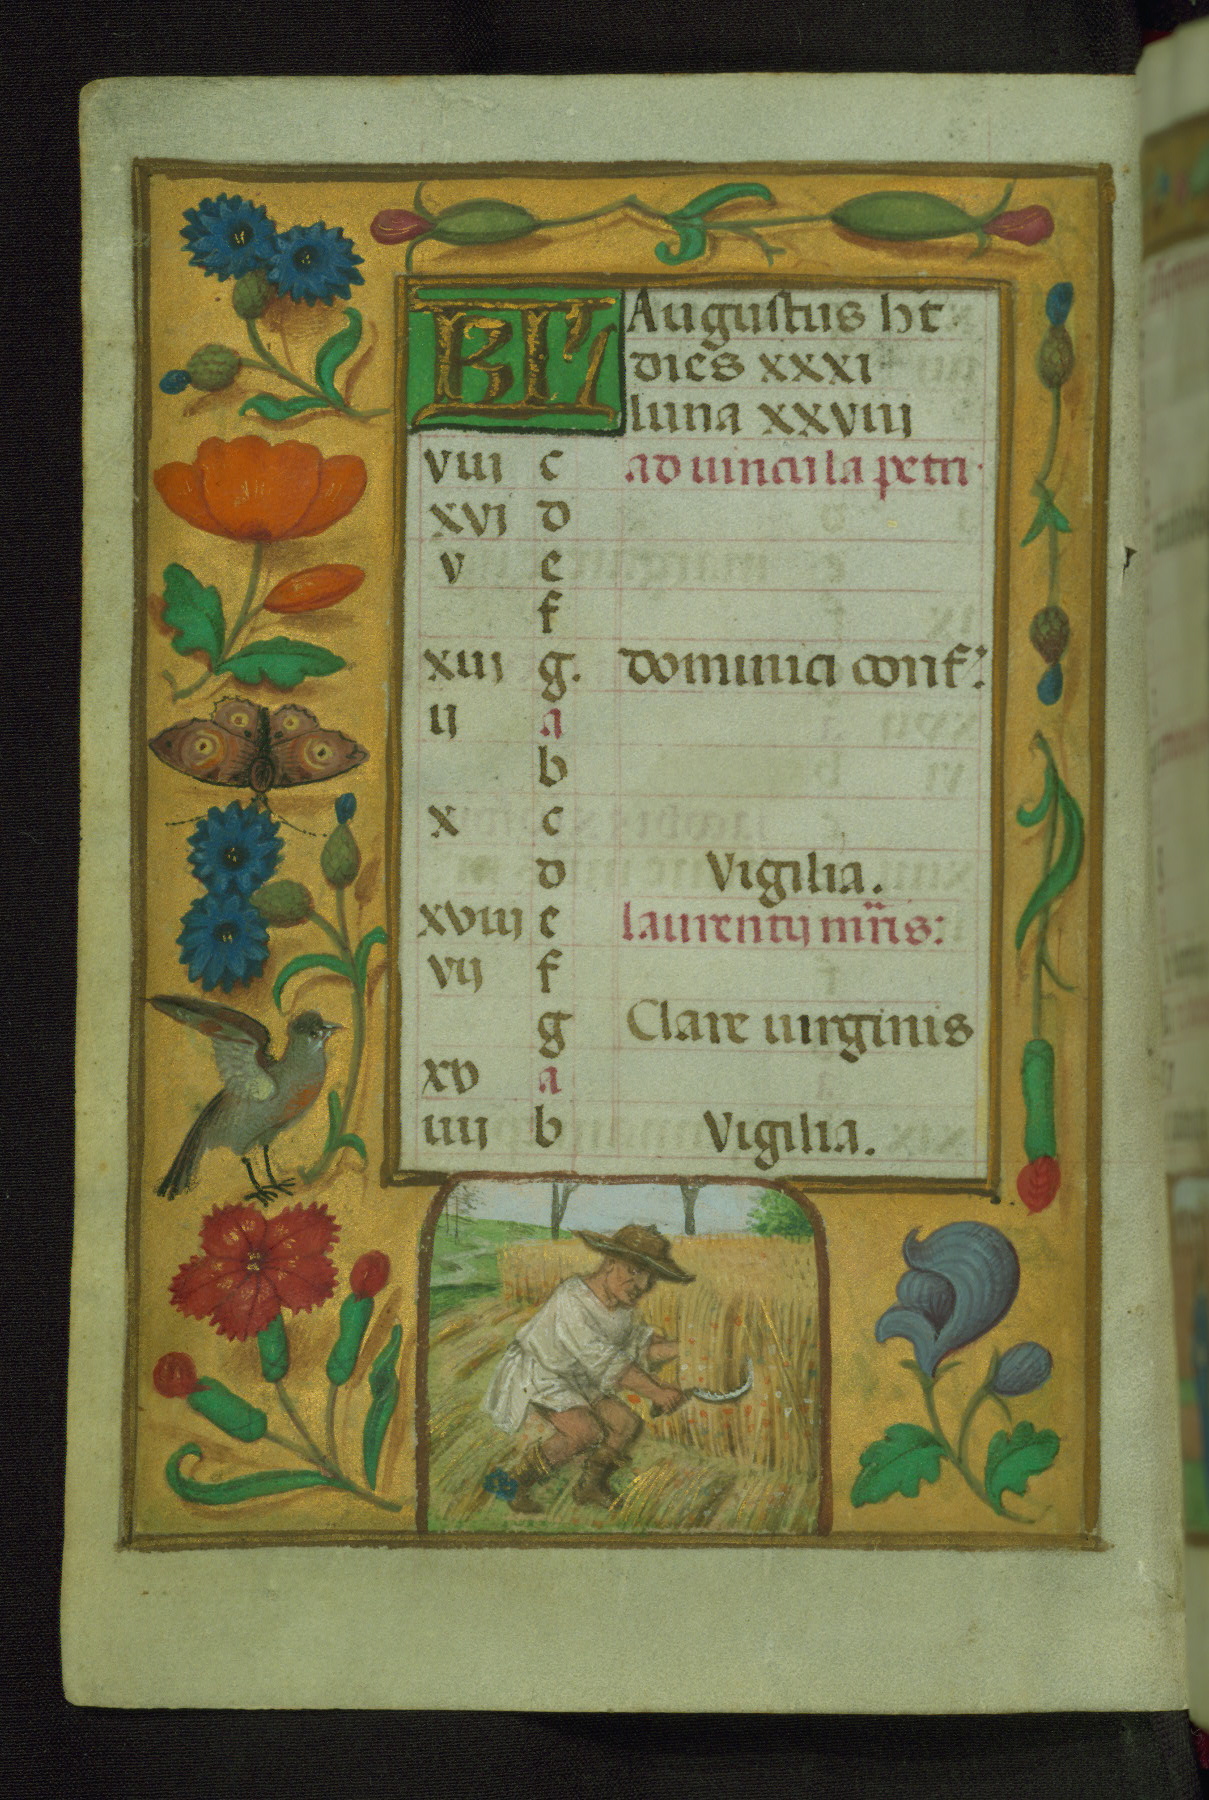 KL Augustus ht
dies xxxi
luna xxviiii
viii c ad uincula petri.
xvi d
v e
f
xiii g. dominici conf:
ii a
b
x c
d Vigilia.
xviii e laurentij mris:
vii f
g Clare uirginis
xv a
iiii b Vigilia.